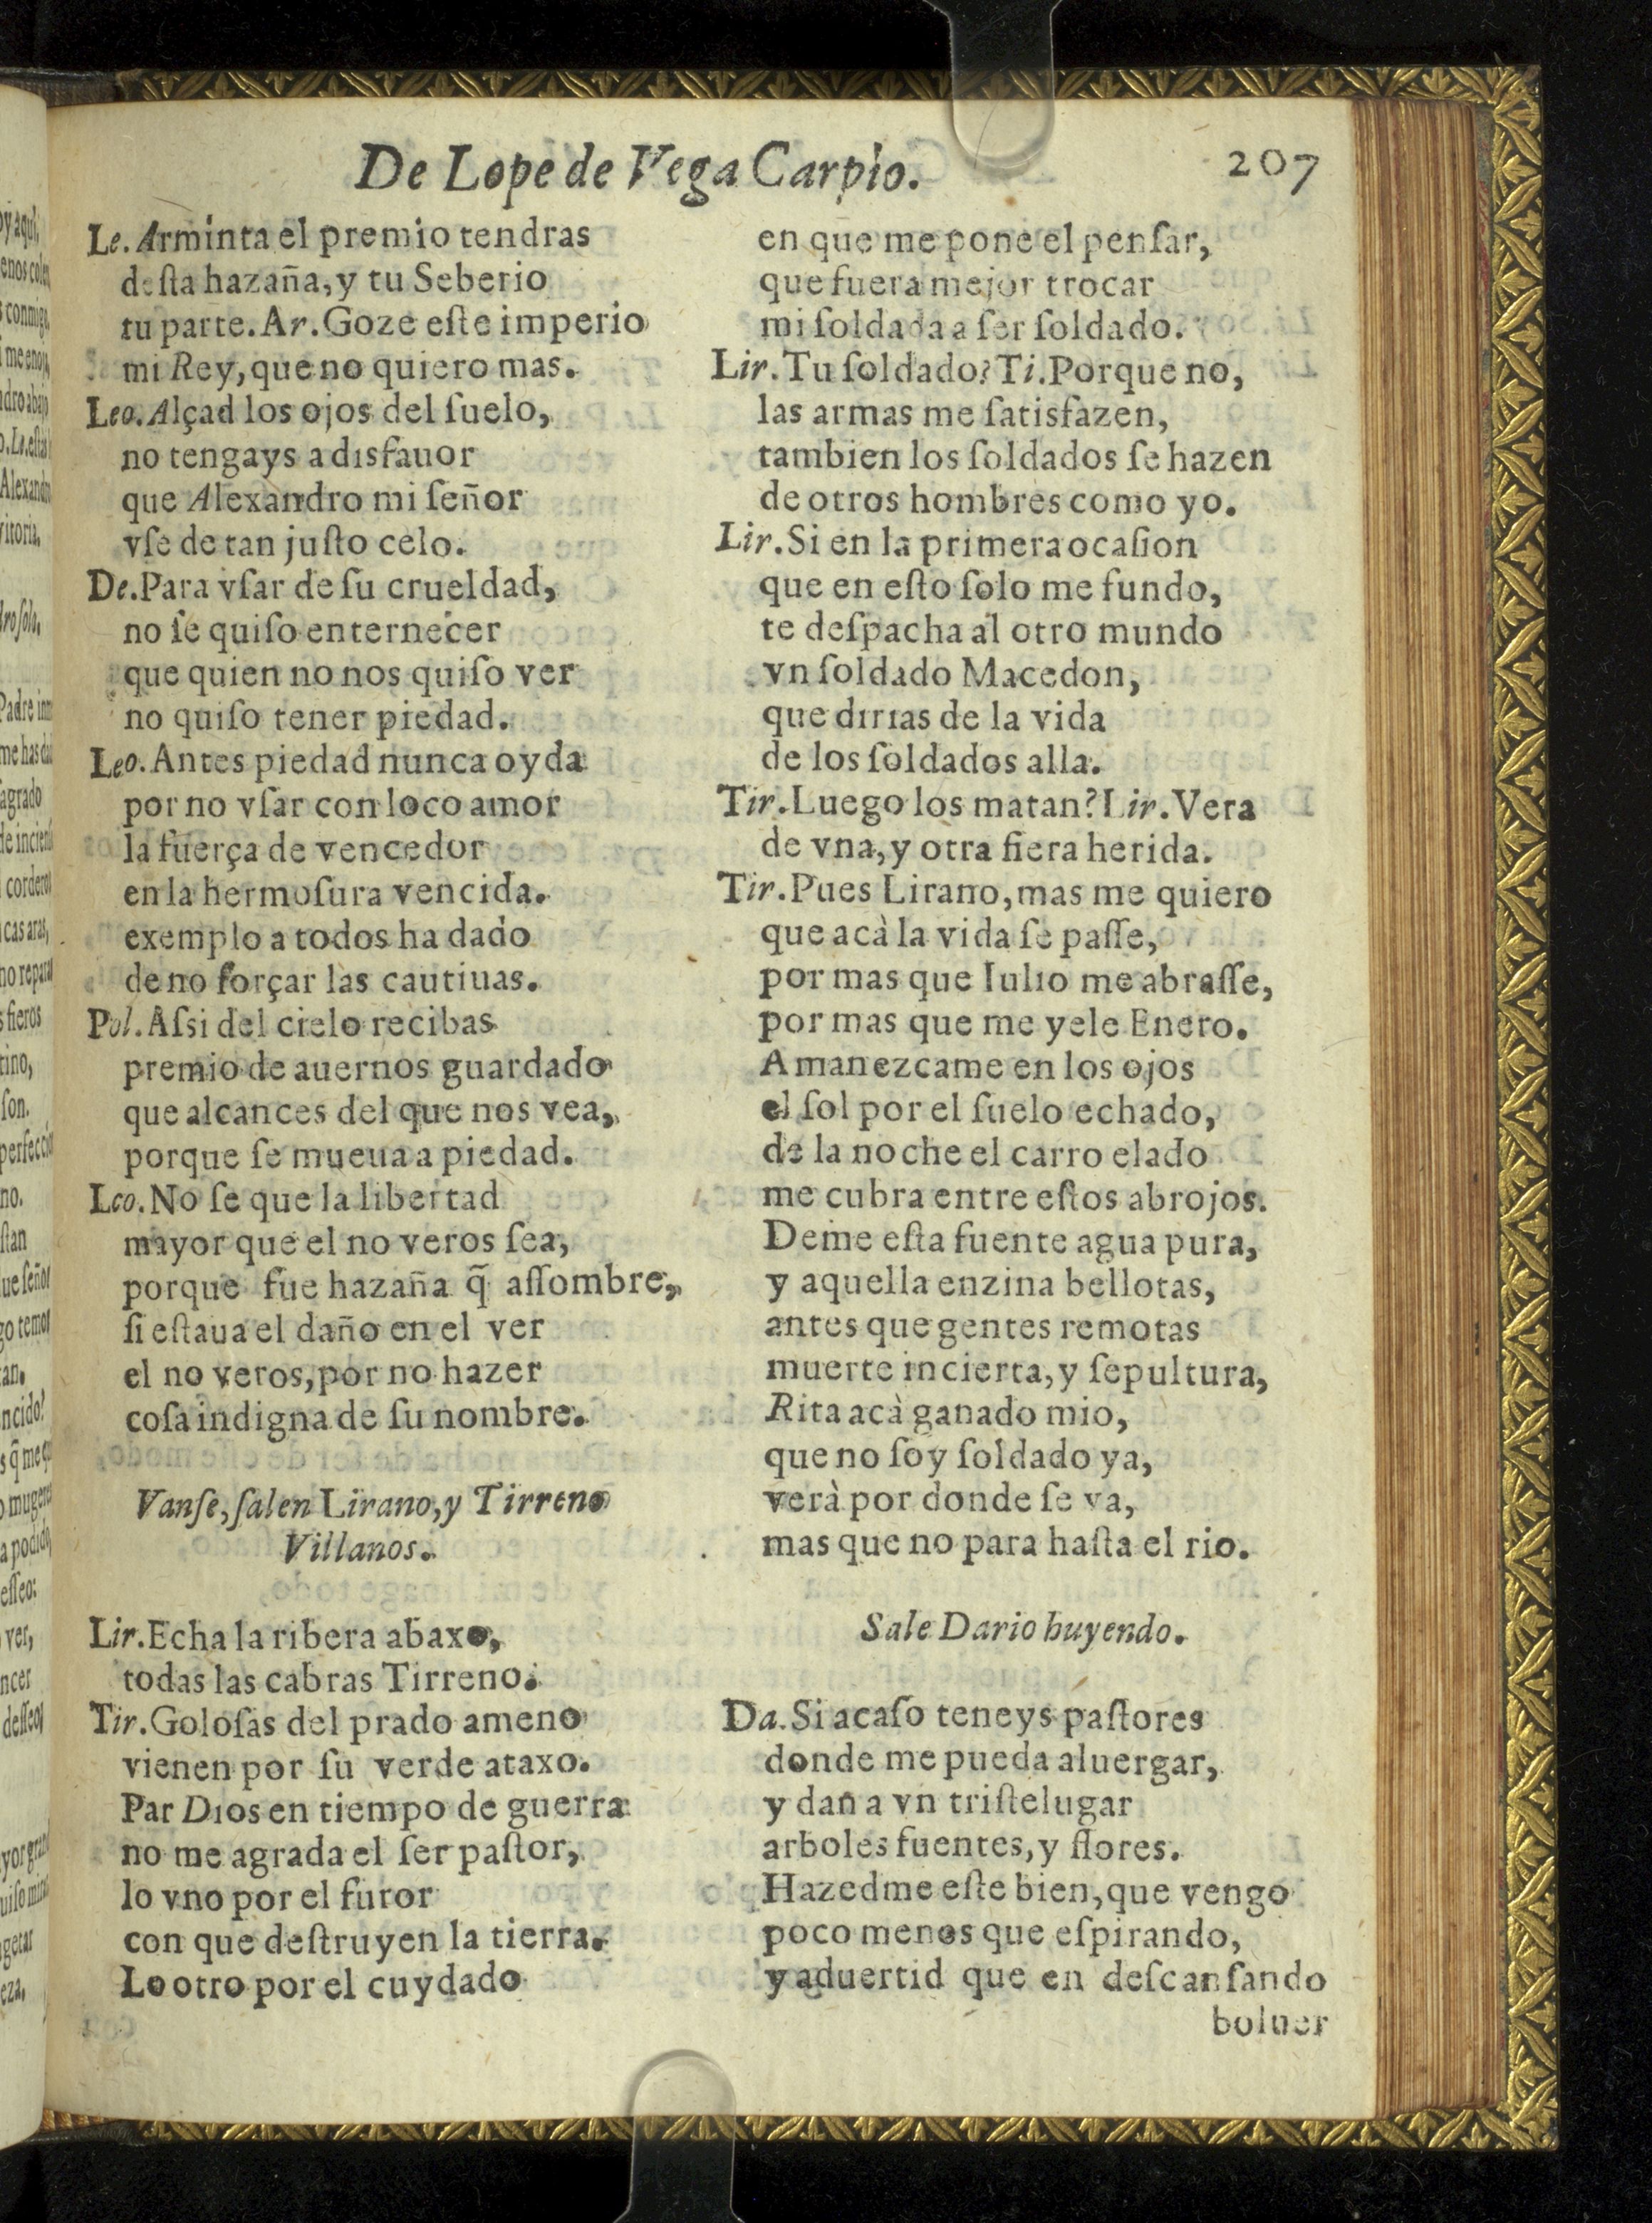 De Lope de Vega Carpio.
207
Le. Arminta el premio tendras
desta hazaña, y tu Seberio
tu parte. Ar. Goze eſte imperio
mi Rey, que no quiero mas.
Leo. Alçad los ojos del ſuelo,
no tengays a disfauor
que Alexandro mi ſeñor
vſe de tan juſto celo.
De. Para vſar de ſu crueldad,
no ſe quiſo enternecer
que quien no nos quiſo ver
no quiſo tener piedad.
Leo. Antes piedad nunca oyda
por no vſar con loco amor
la fuerça de vencedor
en la hermoſura vencida.
exemplo a todos ha dado
de no forçar las cautiuas.
Pol. Aſsi del cielo recibas
premio de auernos guardado
que alcances del que nos vea,
porque ſe mueua a piedad.
Leo. No ſe que la libertad
mayor que el no veros ſea,
porque fue hazaña q̃ aſſombre,
ſi eſtaua el daño en el ver
el no veros, por no hazer
coſa indigna de ſu nombre.
Vanſe, ſalen Lirano, y Tirreno
Villanos.
Lir. Echa la ribera abaxo,
todas las cabras Tirreno.
Tir. Goloſas del prado ameno
vienen por ſu verde ataxo.
Par Dios en tiempo de guerra
no me agrada el ſer paſtor,
lo vno por el furor
con que deſtruyen la tierra.
Lo otro por el cuydado
en que me pone el penſar,
que fuera mejor trocar
mi ſoldada a ſer ſoldado.
Lir. Tu ſoldado? Ti. Porque no,
las armas me ſatisfazen,
tambien los ſoldados ſe hazen
de otros hombres como yo.
Lir. Si en la primera ocaſion
que en eſto ſolo me fundo,
te deſpacha al otro mundo
vn ſoldado Macedon,
que dirias de la vida
de los ſoldados alla.
Tir. Luego los matan? Lir. Vera
de vna, y otra fiera herida.
Tir. Pues Lirano, mas me quiero
que acà la vida ſe paſſe,
por mas que Iulio me abraſſe,
por mas que me yele Enero.
Amanezcame en los ojos
el ſol por el ſuelo echado,
de la noche el carro elado
me cubra entre eſtos abrojos.
Deme eſta fuente agua pura,
y aquella enzina bellotas,
antes que gentes remotas
muerte incierta, y ſepultura,
Rita acà ganado mio,
que no ſoy ſoldado ya,
verà por donde ſe va,
mas que no para haſta el rio.
Sale Dario huyendo.
Da. Si acaſo teneys paſtores
donde me pueda aluergar,
y dan a vn triſte lugar
arboles fuentes, y flores.
Hazedme eſte bien, que vengo
poco menos que eſpirando,
y aduertid que en deſcanſando
boluer